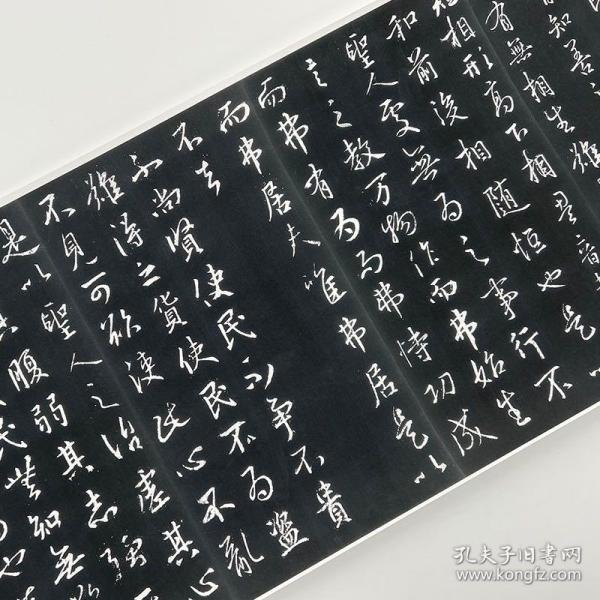 知善
有無相生難
相形高下相音
和前後相隨恒也是以
聖人處無為之事行不
言之教万物作而弗始生
而弗有為而弗恃功成
而弗居夫唯弗居是以
不去
不尚賢使民不爭不貴
難得之貨使民不為盜
不見可欲使民心不亂
是以聖人之治虛其心
其腹弱其志強
民無知無欲
也
孔夫子旧书网
www.kongfz.com